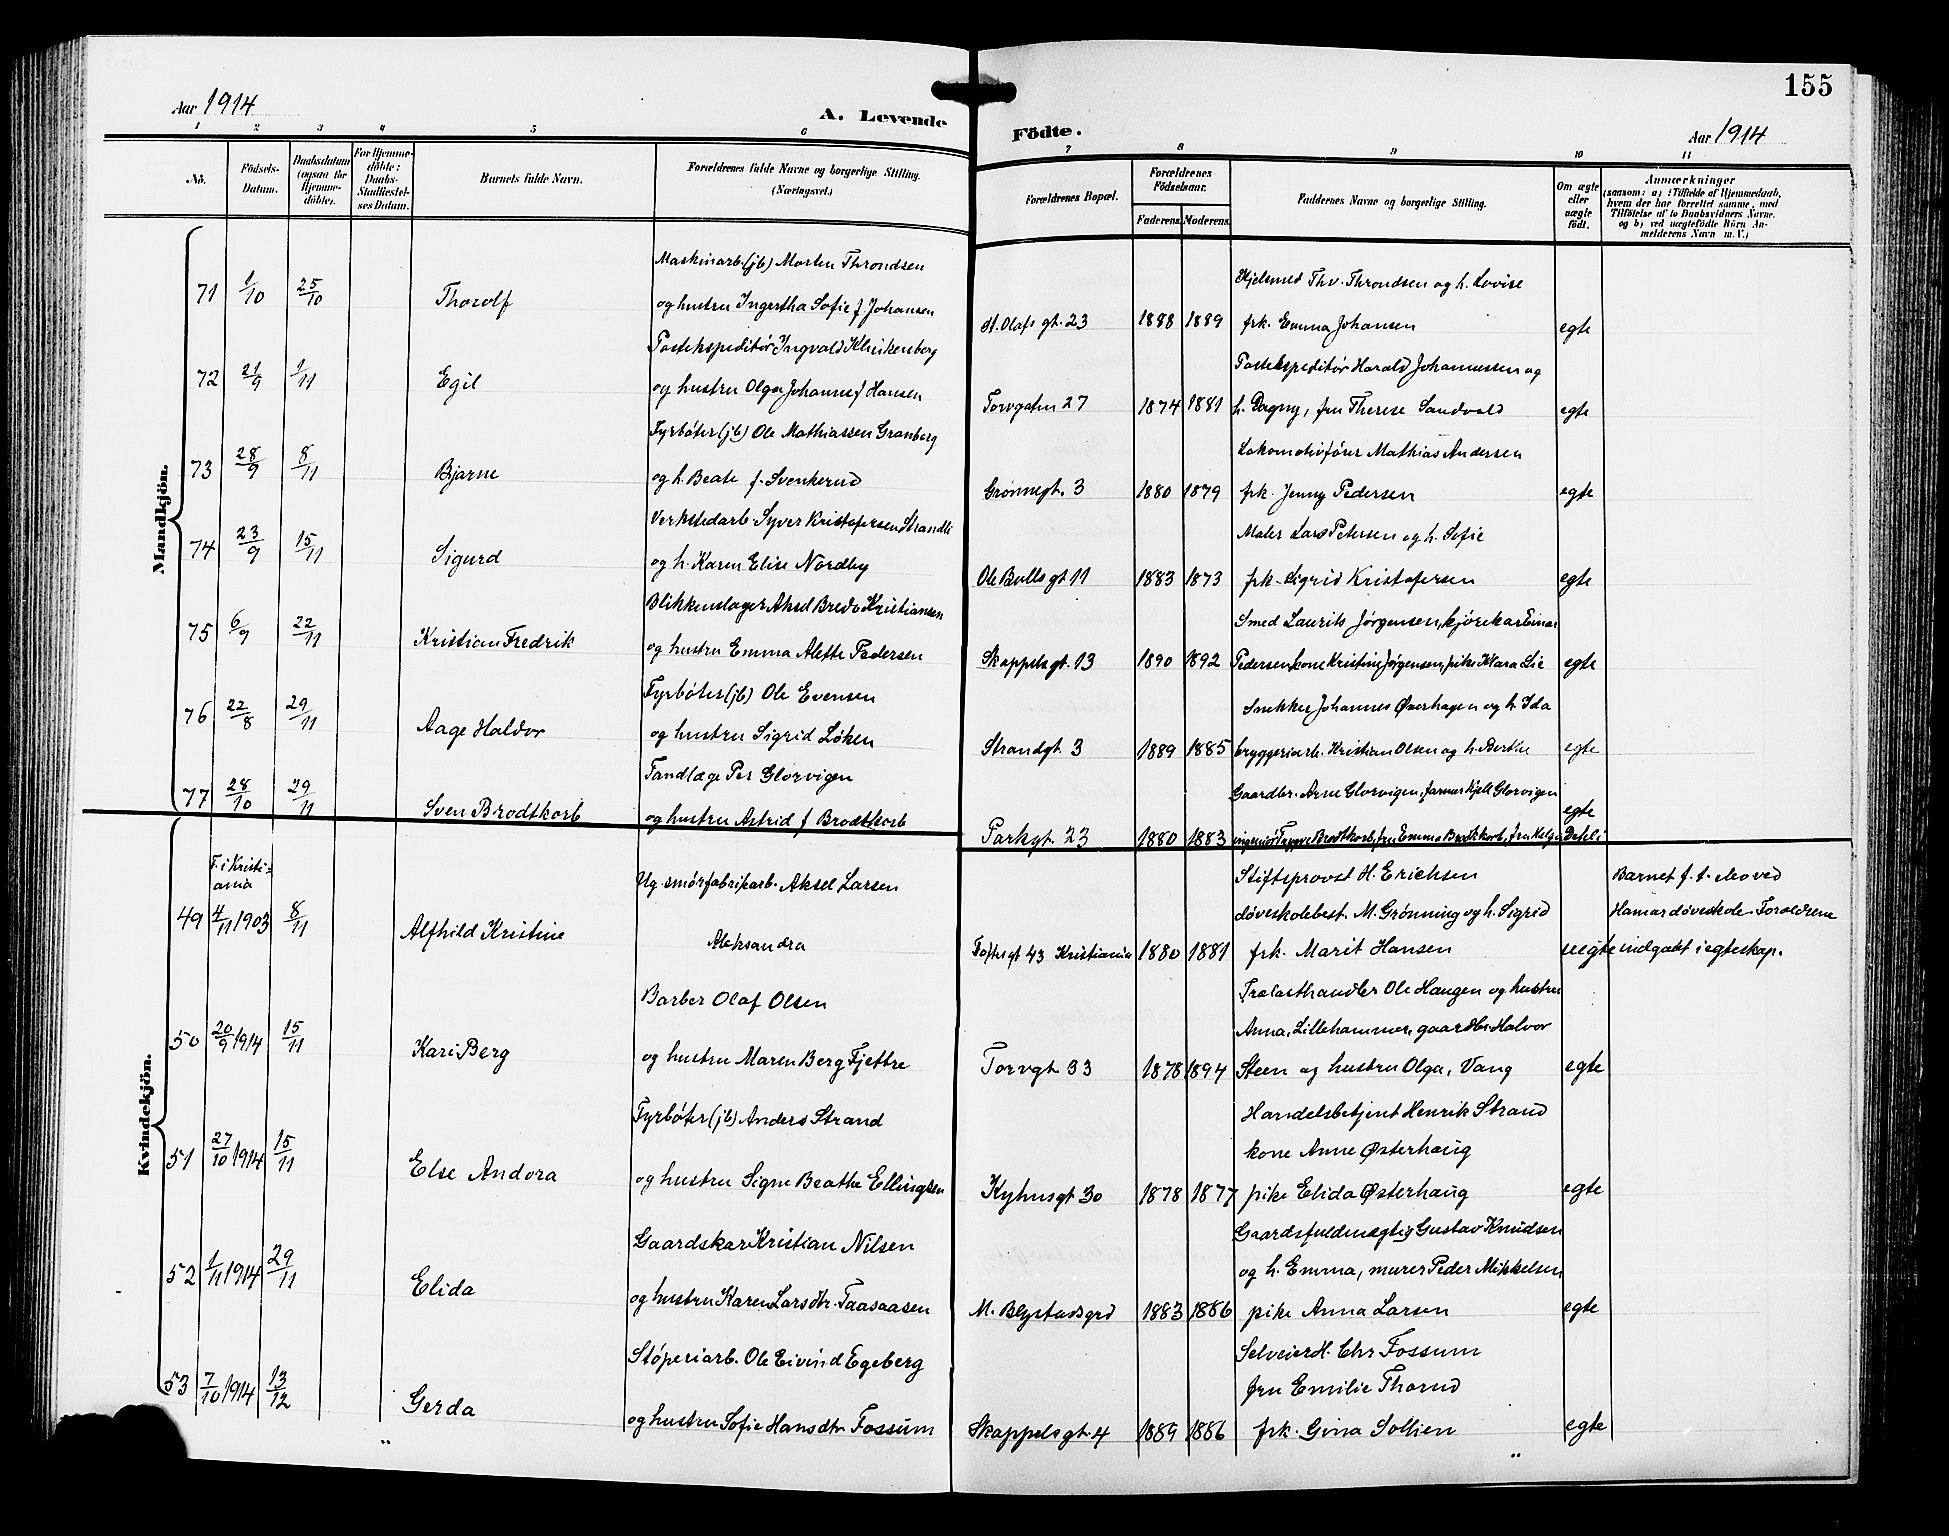 155
Aar 1914
A. Levende
Födte.
Aar 1914
1 2 3 4 5 6
7 8 9 10 11
No.
Födsels-
Datum.
Daabsdatum
(ogsaa for
Hjemme-
döbte).
For Hjemme-
döbte:
Daabs-
Stadfæstel-
ses Datum.
Barnets fulde Navn.
Forældrenes fulde Navne og borgerlige Stilling.
(Næringsvei.)
Forældrenes Bopæl.
Forældrenes
Födselsaar.
Faderens. Moderens.
Faddernes Navne og borgerlige Stilling.
Om ægte
eller
uægte
födt.
Anmærkninger
(saasom: a) i Tilfælde af Hjemmedaab,
hvem der har forrettet samme, med
Tilföielse af to Daabsvidners Navne,
og b) ved uægtefödte Börn An-
melderens Navn m. V.)
Mandkjön.
Maskinarb. (jb) Morten Throndsen
Hjelsmed Thv. Throndsen og h. Lovise
71 1/10 25/10 Thorolf og hustru Ingertha Sofie f Johansen
St. Olafs gt. 23 1888 1889 frk. Emma Johansen egte
Postekspeditør Ingvald Klinkenberg
Postekspeditør Harald Johannessen og
72 21/9 1/11 Egil og hustru Olga Johanne f Hansen
Torvgaten 27 1874 1881 h. Dagny, fru Therese Sandvold egte
Fyrbøter (jb) Ole Mathiassen Granberg
Lokomotivfører Mathias Andersen
73 28/9 8/11 Bjarne og h. Beate f. Svenkerud
Grønnegt. 3 1880 1879 frk. Jenny Pedersen egte
Verkstedarb. Syver Kristofersen Strandli
Maler Lars Petersen og h. Sofie
74 23/9 15/11 Sigurd og h. Karen Elise Nordby
Ole Bulls gt 11 1883 1873 frk. Sigrid Kristofersen egte
Blikkenslager Aksel Bredo Kristiansen
Smed Laurits Jørgensen, kjørekar Einar
75 6/9 22/11 Kristian Fredrik og hustru Emma Alette Pedersen
Skappelsgt. 13 1890 1892 Pedersen kone Kristine Jørgensen, pike Klara Lie egte
Fyrbøter (jb) Ole Evensen
Snekker Johannes Øverhagen og h Ida
76 22/8 29/11 Aage Haldor og hustru Sigrid Løken
Strandgt. 3 1889 1885 bryggeriarb. Kristian Olsen og h. Berthe egte
Tandlæge Per Glorvigen
Gaardbr. Arne Glorvigen, farmer Kjell Glorvigen
77 28/10 29/11 Sven Brodtkorb og hustru Astrid f Brodtkorb
Parkgt. 23 1880 1883 ingeniør Brodtkorb, fru Emma Brodtkorb, fru Helga Dehli egte
Kvindekjön.
F. i Kristi-
ania
Ug. smørfabrikarb. Aksel Larsen
Stiftsprovst H. Erichsen
Barnet f. t. elev ved
døveskolebest. M. Grønning og h. Sigrid
Hamar døveskole. Foreldrene
49 4/11 1903 8/11 Alfhild Kristine Aleksandra
Toftesgt 43 Kristiania 1880 1881 frk. Marit Hansen uegte indgaat i egteskap.
Barber Olaf Olsen
Trælasthandler Ole Haugen og hustru
Anna, Lillehammer, gaardbr Halvor
50 20/9 1914 15/11 Kari Berg og hustru Maren Berg Fjettre
Torvgt. 33 1878 1894 Steen og hustru Olga, Vang egte
Fyrbøter (jb) Anders Strand
Handelsbetjent Henrik Strand
kone Anne Østerhaug
51 27/10 1914 15/11 Else Andora og hustru Signe Beathe Ellingsen
Kyhnsgt 30 1878 1877 pike Elida Østerhaug egte
Gaardskar Kristian Nilsen
Gaardsfuldmægtig Gustav Knudsen
og h. Emma, murer Peder Mikkelsen
52 1/11 1914 29/11 Elida og hustru Karen Larsdtr. Taasaasen
M. Blystadsgrd 1883 1886 pike Anna Larsen egte
Støperiarb. Ole Eivind Egeberg
Selveier H. Chr Fossum
fru Emilie Thorud
53 7/10 1914 13/12 Gerda og hustru Sofie Hansdtr Fossum
Skappelsgt. 4 1889 1886 frk. Gina Sollien egte